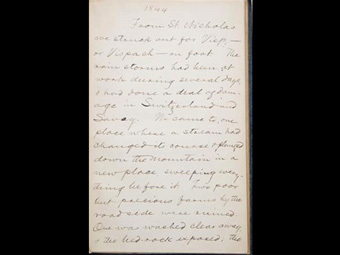 1844
From St. Nicholas
we struck out for Visp —
or Vispach — on foot. The
rain storms had been at
work during several days,
& had done a deal of dam-
age in Switzerland and
Savoy. We came to one
place where a stream had
changed its course & plunged
down the mountain in a
new place, sweeping every-
thing before it. Two poor
but precious farms by the
road side were ruined.
One was washed clear away
& the bed-rock exposed; the